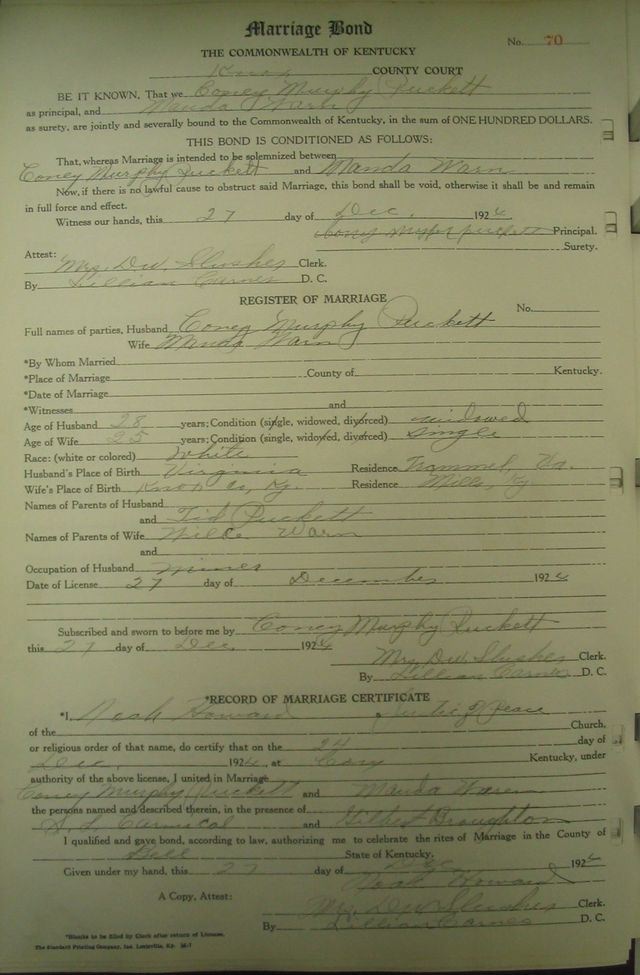 Marriage Bond
No. 70
THE COMMONWEALTH OF KENTUCKY
Knox COUNTY COURT
BE IT KNOWN, That we Coney Murphy Puckett
as principal, and Manda Warn
as surety, are jointly and severally bound to the Commonwealth of Kentucky, in the sum of ONE HUNDRED DOLLARS.
THIS BOND IS CONDITIONED AS FOLLOWS:
That, whereas Marriage is intended to be solemnized between
Coney Murphy Puckett and Manda Warn
Now, if there is no lawful cause to obstruct said Marriage, this bond shall be void, otherwise it shall be and remain
in full force and effect.
Witness our hands, this 27 day of Dec. 1924
Coney Murphy Puckett Principal.
Surety.
Attest:
Mrs. D.W. Slusher Clerk.
By Lillian Carnes D. C.
REGISTER OF MARRIAGE
No.
Full names of parties, Husband, Coney Murphy Puckett
Wife Manda Warn
*By Whom Married
*Place of Marriage County of Kentucky.
*Date of Marriage
*Witnesses and
Age of Husband 28 years; Condition (single, widowed, divorced) widowed
Age of Wife 25 years; Condition (single, widowed, divorced) Single
Race: (white or colored) White
Husband's Place of Birth Virginia Residence Trammel, Va.
Wife's Place of Birth Knox Co, Ky. Residence Mills, Ky
Names of Parents of Husband
and Tid Puckett
Names of Parents of Wife Warn
and
Occupation of Husband miner
Date of License 27 day of December 1924
Subscribed and sworn to before me by Coney Murphy Puckett
this 27 day of Dec. 1924
Mrs. D.W. Slusher Clerk.
By Lillian Carnes D. C.
*RECORD OF MARRIAGE CERTIFICATE
*I, Noah Howard, Justice of Peace
of the Church,
or religious order of that name, do certify that on the day of
Dec. 1924, at Cary Kentucky, under
authority of the above license, I united in Marriage
Coney Murphy Puckett and Manda Waren
the persons named and described therein, in the presence of
and Gilbert Broughton
I qualified and gave bond, according to law, authorizing me to celebrate the rites of Marriage in the County of
Bell State of Kentucky.
Given under my hand, this 27 day of Dec 1924
Noah Howard
A Copy, Attest:
Mrs. D.W. Slusher Clerk.
By Lillian Carnes D. C.
*Blanks to be filled by Clerk after return of License.
The Standard Printing Company, Inc. Louisville, Ky.